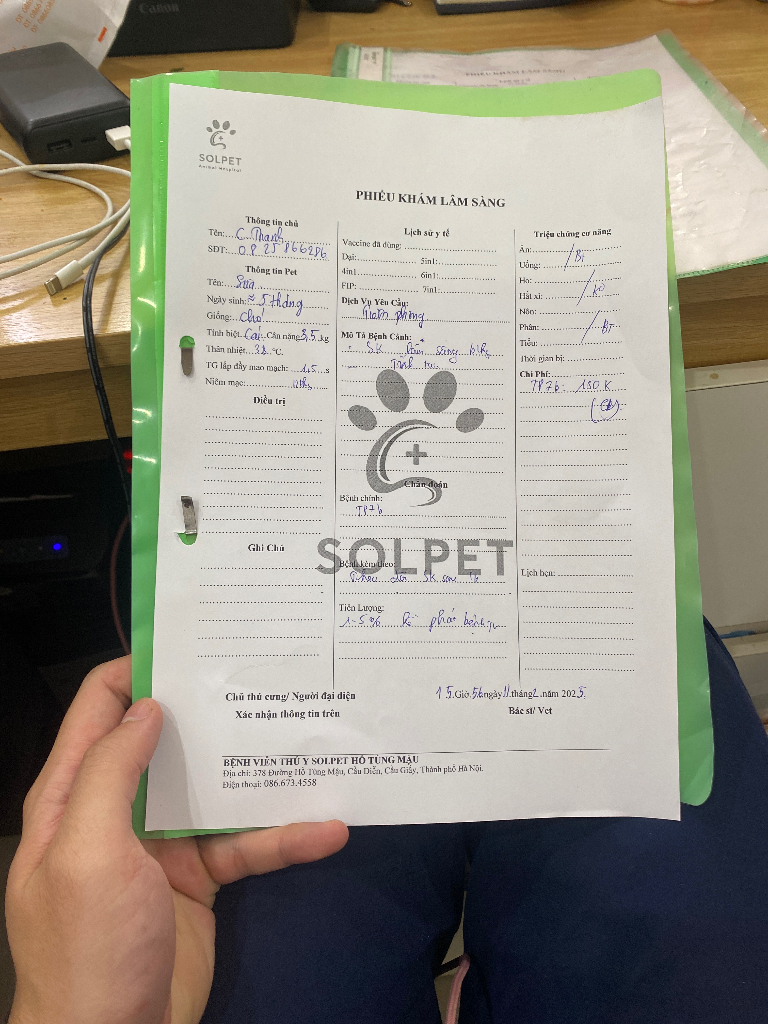 Canon
PHIẾU KHÁM LÂM SÀNG
SOLPET
Animal Hospital
PHIẾU KHÁM LÂM SÀNG
Thông tin chủ
Tên: C. Thanh
SĐT: 0825866286
Thông tin Pet
Tên: Sữa
Ngày sinh: ≈ 5 tháng
Giống: Chó
Tính biệt: Cái Cân nặng 3,5 kg
Thân nhiệt: 38 °C.
TG lấp đầy mao mạch: 1,5 s
Niêm mạc:
Điều trị
Ghi Chú
Lịch sử y tế
Vaccine đã dùng:
Dại: 5in1:
4in1: 6in1:
FIP: 7in1:
Dịch Vụ Yêu Cầu:
Tiêm phòng
Mô Tả Bệnh Cảnh:
- SK lâm sàng
Chẩn đoán
Bệnh chính:
TP7b
SOLPET
Bệnh kèm theo:
Theo dõi SK sau
Tiên Lượng:
1-5% phát bệnh
Triệu chứng cơ năng
Ăn:
Uống: / Bt
Ho:
Hắt xì: / ko
Nôn:
Phân: / Bt
Tiểu:
Thời gian bị:
Chi Phí:
TP7b: 150K
Lịch hẹn:
Chủ thú cưng/ Người đại diện
Xác nhận thông tin trên
15 Giờ 56 ngày 11 tháng 2 năm 2025
Bác sĩ/ Vet
BỆNH VIỆN THÚ Y SOLPET HỒ TÙNG MẬU
Địa chỉ: 378 Đường Hồ Tùng Mậu, Cầu Diễn, Cầu Giấy, Thành phố Hà Nội.
Điện thoại: 086.673.4558